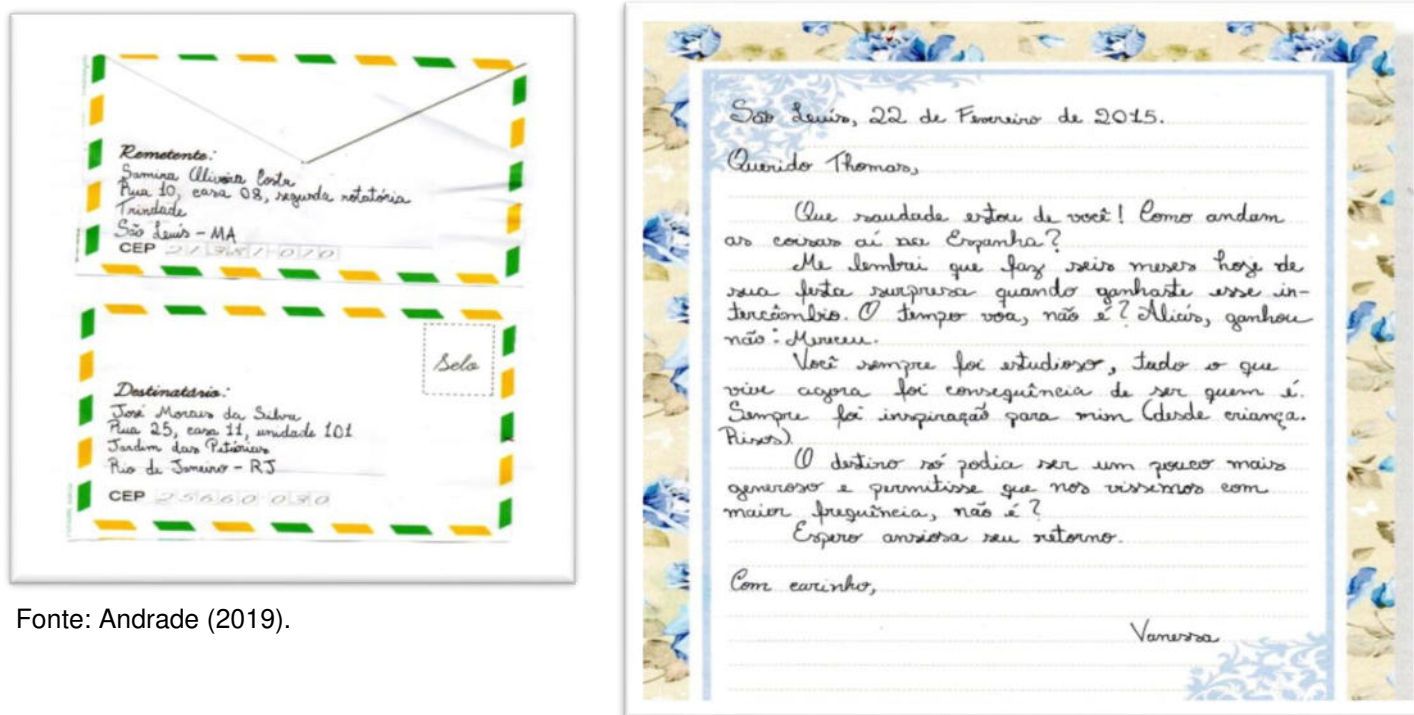 Remetente:
Samira Oliveira Costa
Rua 10, casa 08, segunda rotatória
Trindade
São Luís - MA
CEP 21381-070
Selo
Destinatário:
José Moraes da Silva
Rua 25, casa 11, unidade 101
Jardim das
Rio de Janeiro - RJ
CEP 25660-030
Fonte: Andrade (2019).
São Luís, 22 de Fevereiro de 2015.
Querido Thomas,
Que saudade estou de você! Como andam
as coisas aí na Espanha?
Me lembrei que faz seis meses hoje de
sua festa surpresa quando ganhaste esse in-
tercâmbio. O tempo voa, não é? Aliás, ganhou
não: Mereceu.
Você sempre foi estudioso, tudo o que
vive agora foi consequência de ser quem é.
Sempre foi inspiração para mim (desde criança.
Risos).
O destino só podia ser um pouco mais
generoso e permitisse que nos víssemos com
maior frequência, não é?
Espero ansiosa seu retorno.
Com carinho,
Vanessa